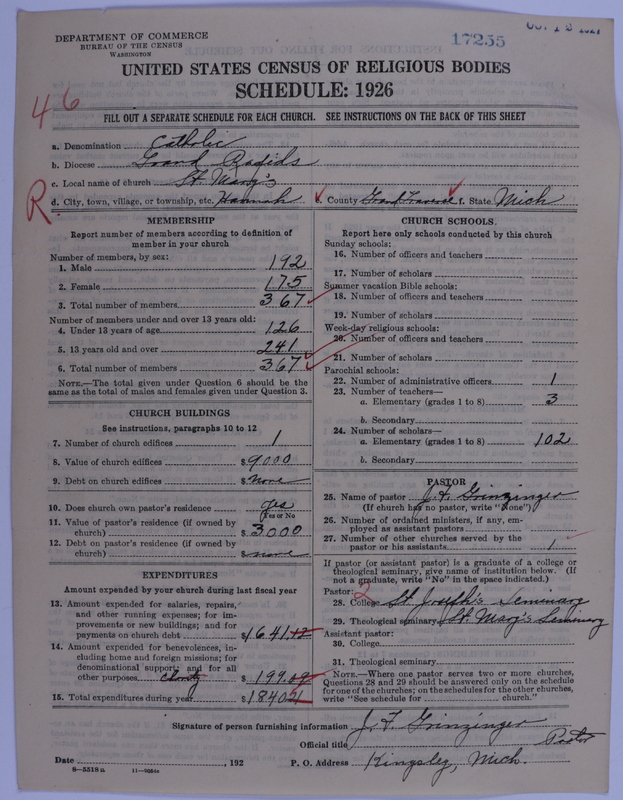 DEPARTMENT OF COMMERCE
BUREAU OF THE CENSUS
WASHINGTON
17255
UNITED STATES CENSUS OF RELIGIOUS BODIES
SCHEDULE: 1926
46
FILL OUT A SEPARATE SCHEDULE FOR EACH CHURCH. SEE INSTRUCTIONS ON THE BACK OF THIS SHEET
a. Denomination Catholic
b. Diocese Grand Rapids
c. Local name of church St. Mary's
R
d. City, town, village, or township, etc. Hannah e. County Grand Traverse f. State Mich
MEMBERSHIP
Report number of members according to definition of
member in your church
Number of members, by sex:
1. Male 192
2. Female 175
3. Total number of members 367
Number of members under and over 13 years old:
4. Under 13 years of age 126
5. 13 years old and over 241
6. Total number of members 367
NOTE.—The total given under Question 6 should be the
same as the total of males and females given under Question 3.
CHURCH BUILDINGS
See instructions, paragraphs 10 to 12
7. Number of church edifices 1
8. Value of church edifices $ 9000
9. Debt on church edifices $ none
10. Does church own pastor's residence yes
(Yes or No)
11. Value of pastor's residence (if owned by
church) $ 3000
12. Debt on pastor's residence (if owned by
church) $ none
EXPENDITURES
Amount expended by your church during last fiscal year
13. Amount expended for salaries, repairs,
and other running expenses; for im-
provements or new buildings; and for
payments on church debt $ 1641.12
14. Amount expended for benevolences, in-
cluding home and foreign missions; for
denominational support; and for all
other purposes charity $ 199.09
15. Total expenditures during year $ 1840.21
CHURCH SCHOOLS.
Report here only schools conducted by this church
Sunday schools:
16. Number of officers and teachers
17. Number of scholars
Summer vacation Bible schools:
18. Number of officers and teachers
19. Number of scholars
Week-day religious schools:
20. Number of officers and teachers
21. Number of scholars
Parochial schools:
22. Number of administrative officers 1
23. Number of teachers—
a. Elementary (grades 1 to 8) 3
b. Secondary
24. Number of scholars—
a. Elementary (grades 1 to 8) 102
b. Secondary
PASTOR
25. Name of pastor J. F. Grinzinger
(If church has no pastor, write "None")
26. Number of ordained ministers, if any, em-
ployed as assistant pastors
27. Number of other churches served by the
pastor or his assistants 1
If pastor (or assistant pastor) is a graduate of a college or
theological seminary, give name of institution below. (If
not a graduate, write "No" in the space indicated.)
Pastor: 2
28. College St Joseph's Seminary
29. Theological seminary St. Mary's Seminary
Assistant pastor:
30. College
31. Theological seminary
NOTE.—Where one pastor serves two or more churches,
Questions 28 and 29 should be answered only on the schedule
for one of the churches; on the schedules for the other churches,
write "See schedule for church."
Signature of person furnishing information J. F. Grinzinger
Official title Pastor
Date , 192 P. O. Address Kingsley, Mich.
8-5518a 11-9664